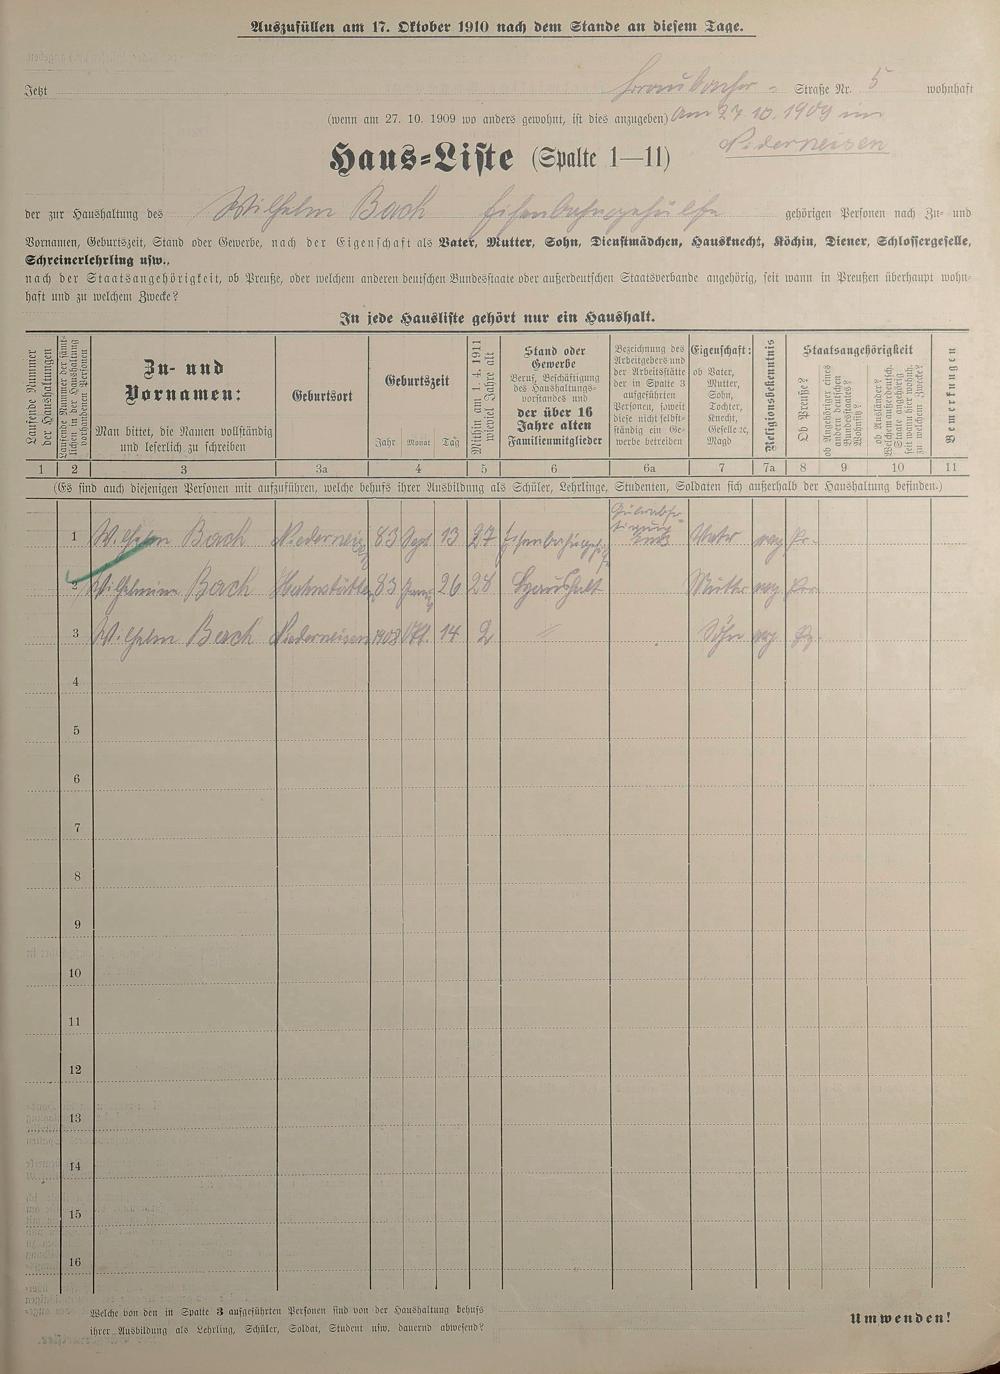 Auszufüllen am 17. Oktober 1910 nach dem Stande an diesem Tage.
Jetzt Braubacher - Straße Nr. 5 wohnhaft
(wenn am 27. 10. 1909 wo anders gewohnt, ist dies anzugeben) Am 27 10. 1909 in
Niederneisen
Haus-Liste (Spalte 1—11)
der zur Haushaltung des Wilhelm Bach Eisenbahngehülfe gehörigen Personen nach Zu- und
Vornamen, Geburtszeit, Stand oder Gewerbe, nach der Eigenschaft als Vater, Mutter, Sohn, Dienstmädchen, Hausknecht, Köchin, Diener, Schlossergeselle,
Schreinerlehrling usw.,
nach der Staatsangehörigkeit, ob Preuße, oder welchem anderen deutschen Bundesstaate oder außerdeutschen Staatsverbande angehörig, seit wann in Preußen überhaupt wohn-
haft und zu welchem Zwecke?
In jede Hausliste gehört nur ein Haushalt.
Laufende Nummer
der Haushaltungen
Laufende Nummer der sämt-
lichen in der Haushaltung
vorhandenen Personen
Zu- und
Vornamen:
Man bittet, die Namen vollständig
und leserlich zu schreiben
Geburtsort
Geburtszeit
Jahr Monat Tag
Mithin am 1. 4. 1911
wieviel Jahre alt
Stand oder
Gewerbe
Beruf, Beschäftigung
des Haushaltungs-
vorstandes und
der über 16
Jahre alten
Familienmitglieder
Bezeichnung des
Arbeitgebers und
der Arbeitsstätte
der in Spalte 3
aufgeführten
Personen, soweit
diese nicht selbst-
ständig ein Ge-
werbe betreiben
Eigenschaft:
ob Vater,
Mutter,
Sohn,
Tochter,
Knecht,
Geselle etc,
Magd
Religionsbekenntnis
Staatsangehörigkeit
Ob Preuße?
ob Angehöriger eines
andern deutschen
Bundesstaates?
Wohnsitz?
ob Ausländer?
Welchem außerdeutsch.
Staate angehörig
seit wann hier wohnh.
zu welchem Zwecke?
Bemerkungen
1 2 3 3a 4 5 6 6a 7 7a 8 9 10 11
(Es sind auch diejenigen Personen mit aufzuführen, welche behufs ihrer Ausbildung als Schüler, Lehrlinge, Studenten, Soldaten sich außerhalb der Haushaltung befinden.)
1 Wilhelm Bach Niederneisen 83 Sept 13 27 Vater evg Pr.
2 Wilhelmine Bach Hahnstätten 83 26 28 Haushalt Mutter evg Pr.
3 Wilhelm Bach Niederneisen 1908 Okt. 14 2 " Sohn evg Pr.
4
5
6
7
8
9
10
11
12
13
14
15
16
Welche von den in Spalte 3 aufgeführten Personen sind von der Haushaltung behufs
ihrer Ausbildung als Lehrling, Schüler, Soldat, Student usw. dauernd abwesend?
Umwenden!